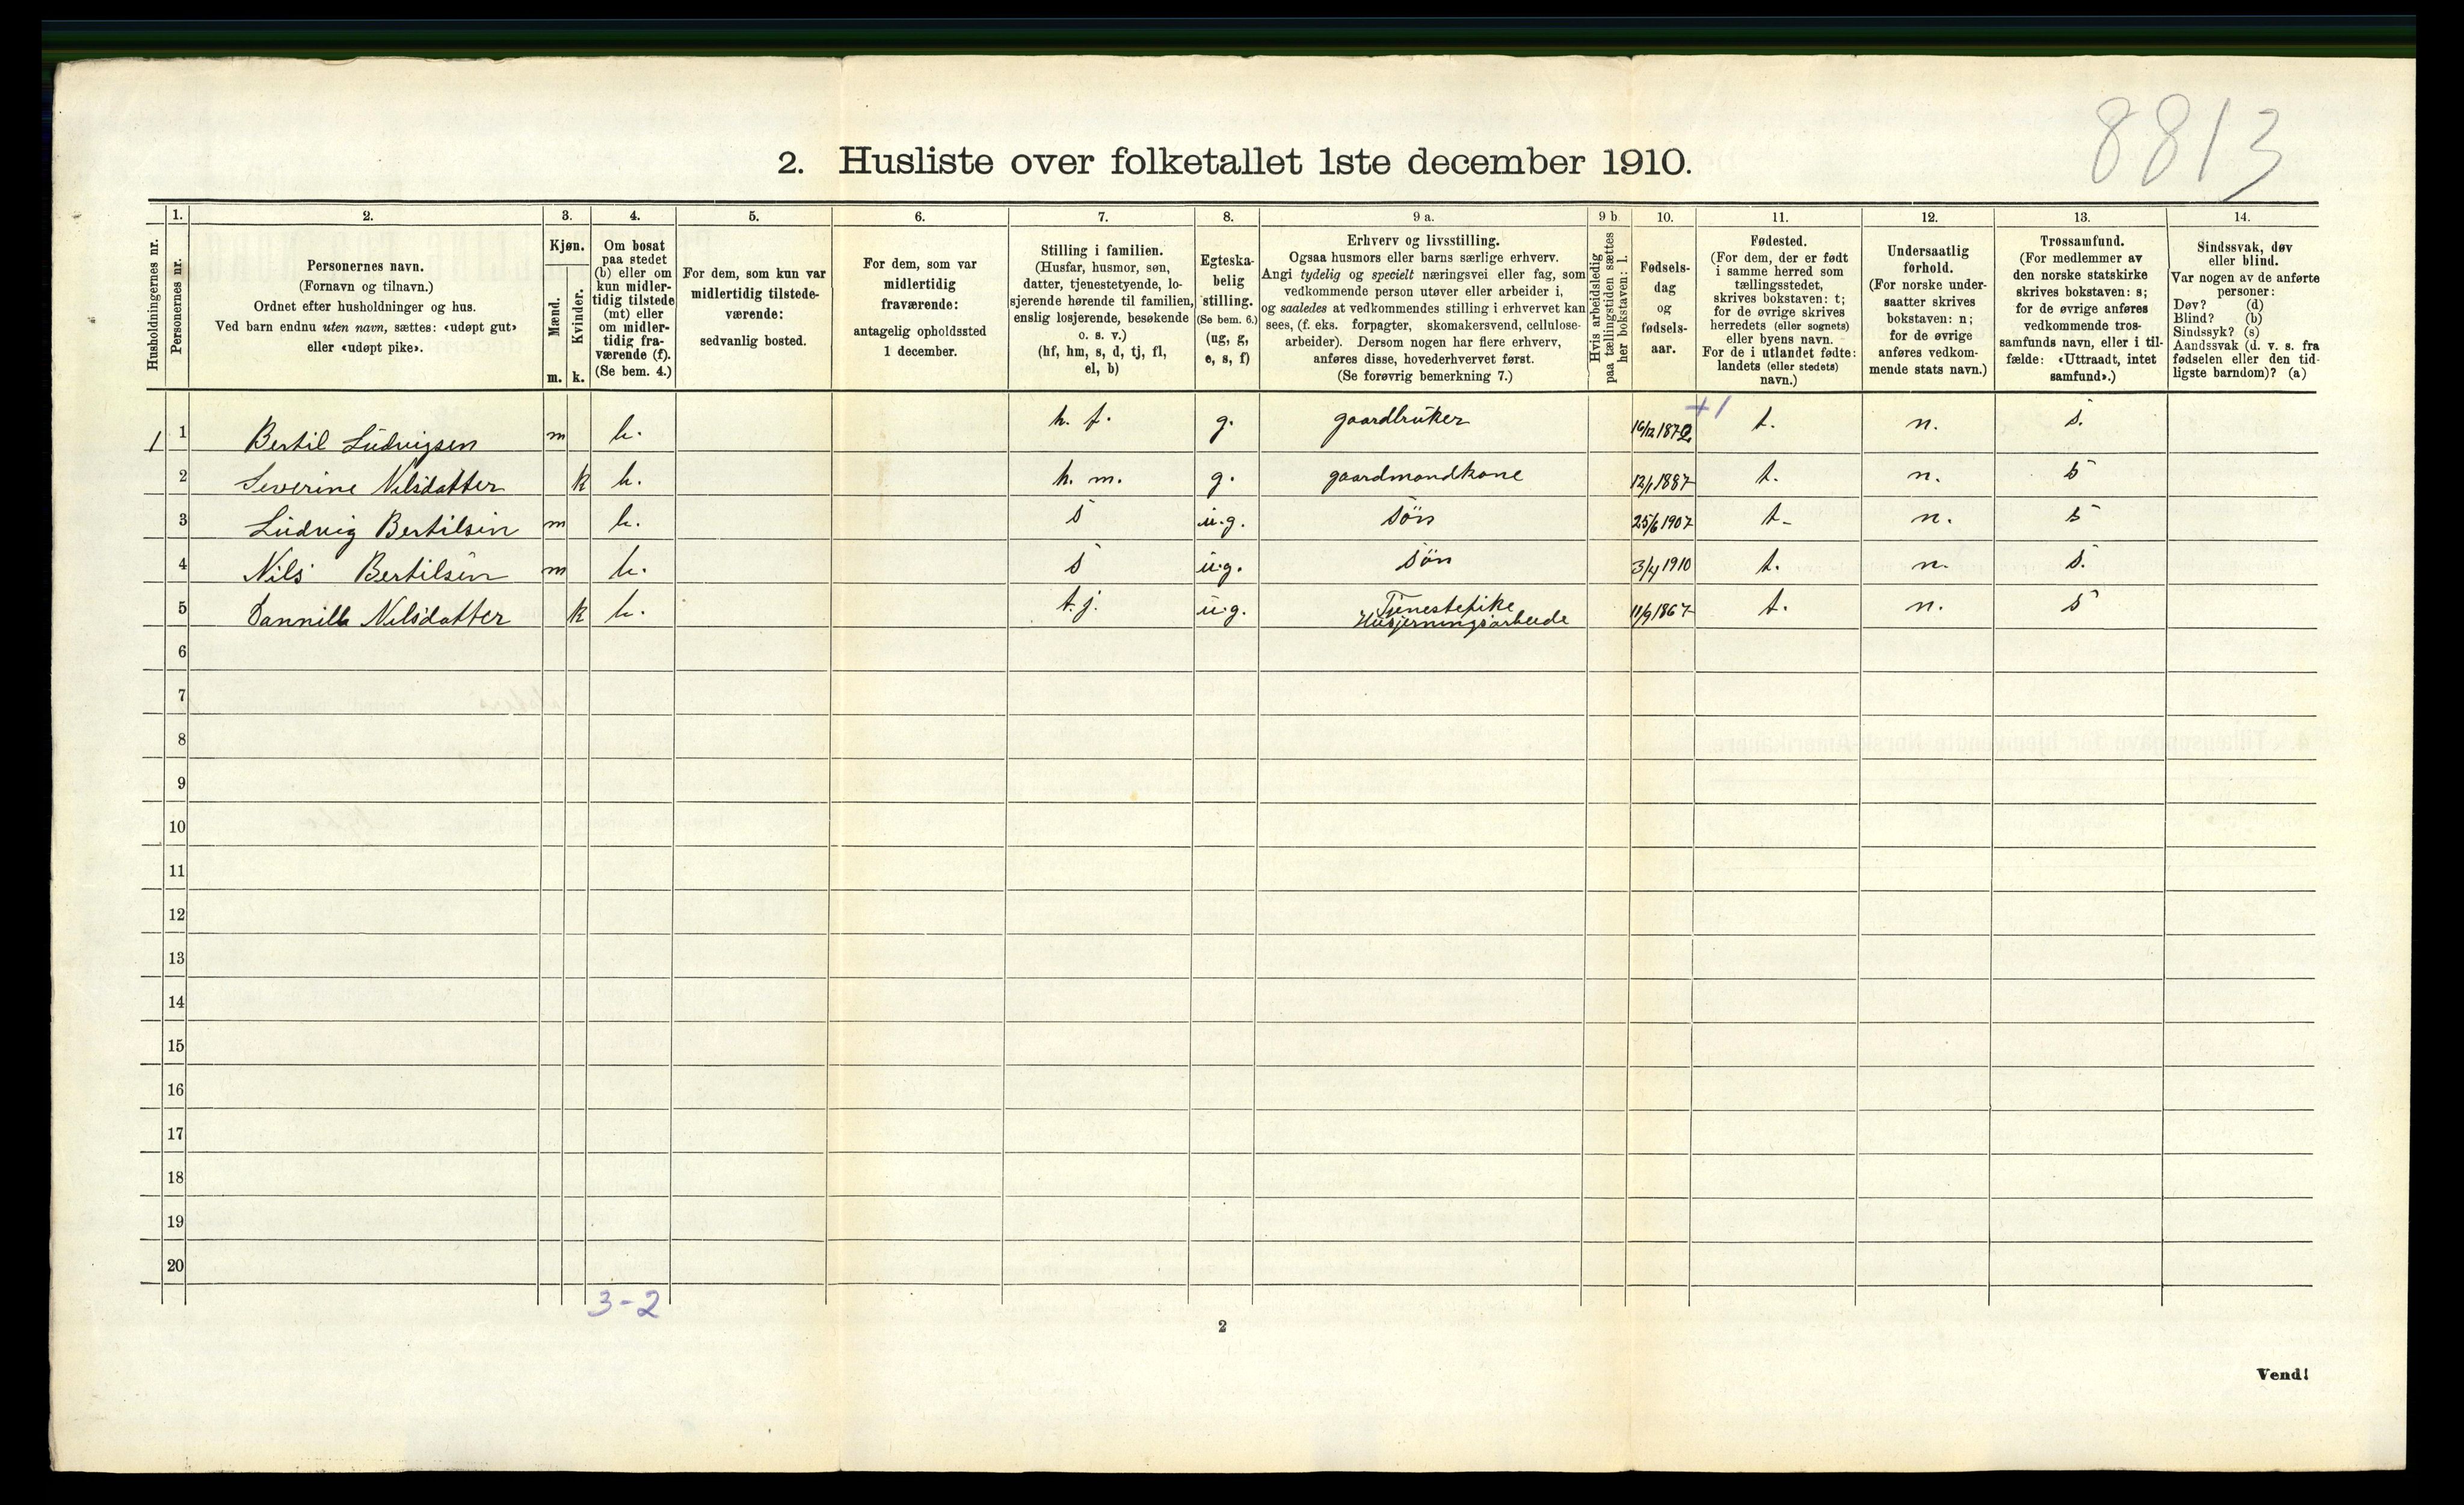 8813
2. Husliste over folketallet 1ste december 1910.
Husholdningernes nr.
1. Personernes nr.
2. Personernes navn.
(Fornavn og tilnavn.)
Ordnet efter husholdninger og hus.
Ved barn endnu uten navn, sættes: «udøpt gut»
eller «udøpt pike».
3. Kjøn.
Mænd. m.
Kvinder. k.
4. Om bosat
paa stedet
(b) eller om
kun midler-
tidig tilstede
(mt) eller
om midler-
tidig fra-
værende (f).
(Se bem. 4.)
5. For dem, som kun var
midlertidig tilstede-
værende:
sedvanlig bosted.
6. For dem, som var
midlertidig
fraværende:
antagelig opholdssted
1 december.
7. Stilling i familien.
(Husfar, husmor, søn,
datter, tjenestetyende, lo-
sjerende hørende til familien,
enslig losjerende, besøkende
o. s. v.)
(hf, hm, s, d, tj, fl,
el, b)
8. Egteska-
belig
stilling.
(Se bem. 6.)
(ug, g,
e, s, f)
9 a. Erhverv og livsstilling.
Ogsaa husmors eller barns særlige erhverv.
Angi tydelig og specielt næringsvei eller fag, som
vedkommende person utøver eller arbeider i,
og saaledes at vedkommendes stilling i erhvervet kan
sees, (f. eks. forpagter, skomakersvend, cellulose-
arbeider). Dersom nogen har flere erhverv,
anføres disse, hovederhvervet først.
(Se forøvrig bemerkning 7.)
9 b. Hvis arbeidsledig
paa tællingstiden sættes
her bokstaven: l.
10. Fødsels-
dag
og
fødsels-
aar.
11. Fødested.
(For dem, der er født
i samme herred som
tællingsstedet,
skrives bokstaven: t;
for de øvrige skrives
herredets (eller sognets)
eller byens navn.
For de i utlandet fødte:
landets (eller stedets)
navn.)
12. Undersaatlig
forhold.
(For norske under-
saatter skrives
bokstaven: n;
for de øvrige
anføres vedkom-
mende stats navn.)
13. Trossamfund.
(For medlemmer av
den norske statskirke
skrives bokstaven: s;
for de øvrige anføres
vedkommende tros-
samfunds navn, eller i til-
fælde: «Uttraadt, intet
samfund».)
14. Sindssvak, døv
eller blind.
Var nogen av de anførte
personer:
Døv? (d)
Blind? (b)
Sindssyk? (s)
Aandssvak (d. v. s. fra
fødselen eller den tid-
ligste barndom)? (a)
+1
1 1 Bertil Ludvigsen m b. h. f. g. gaardbruker 16/12 1872 t. n. s.
2 Severine Nilsdatter k b. h. m. g. gaardmandkone 12/1 1887 t. n. s
3 Ludvig Bertilsen m b. s u.g. søn 25/6 1907 t- n. s
4 Nils Bertilsen m b. s u.g. søn 3/4 1910 t. n. s.
5 Tannilla Nilsdatter k b. t. j. u.g. Tjenestepike
Husjerningsarbeide 11/9 1867 t. n. s
6
7
8
9
10
11
12
13
14
15
16
17
18
19
20
3-2
2
Vend!